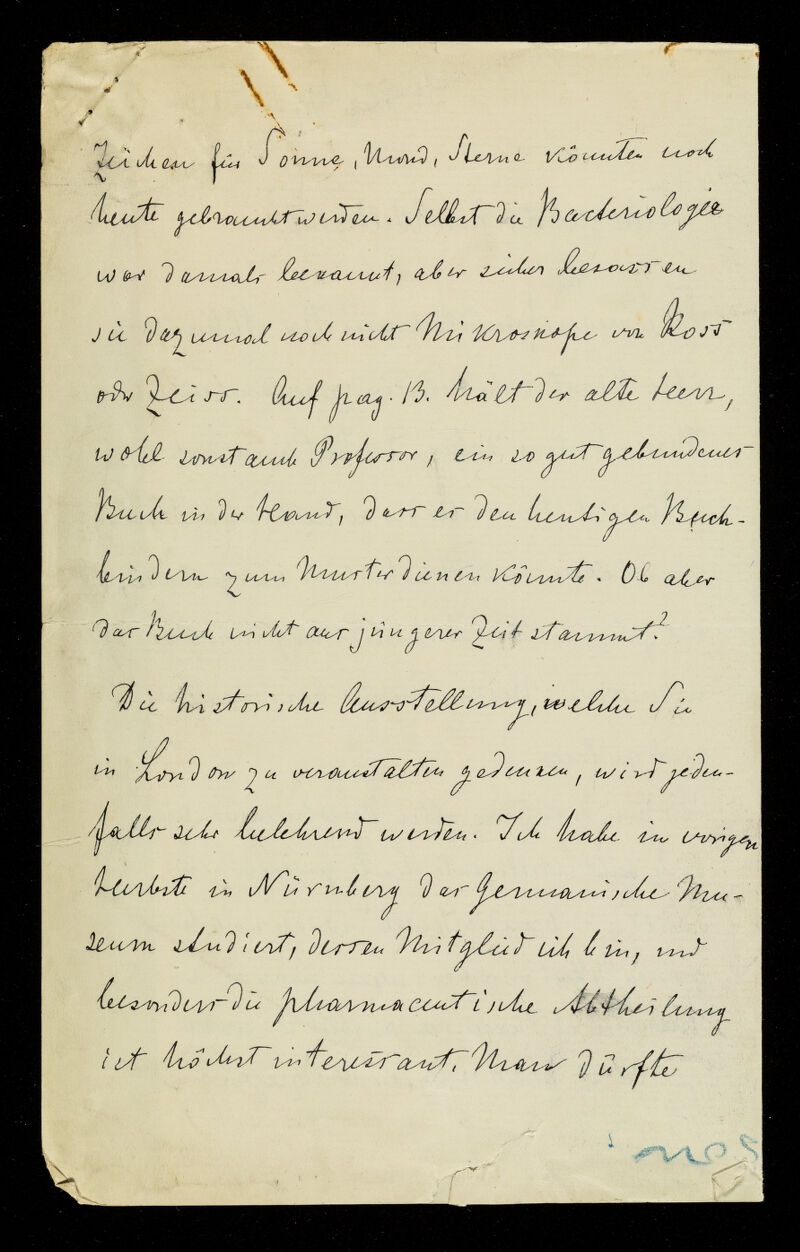 Zeichen für Sonne, Mond, Sterne könnten noch
heute gebraucht werden. Selbst die Bacteriologie
war damals bekannt, aber sicher besassen
sie dazumal noch nicht Mikroskope von Ross
oder Zeiss. Auf pag. 13. hält der alte Herr,
wohl sonst auch Professor, ein so gut gebundenes
Buch in der Hand, dass es den heutigen Buch-
bindern zum Muster dienen könnte. Ob aber
das Buch nicht aus jüngerer Zeit stammt?
Die historische Ausstellung, welche Sie
in London zu veranstalten gedenken, wird jeden-
falls sehr belehrend werden. Ich habe im vorigen
Herbste in Nürnberg das Germanische Mu-
seum studiert, dessen Mitglied ich bin, und
besonders die pharmaceutische Abtheilung
ist höchst interessant. Man dürfte